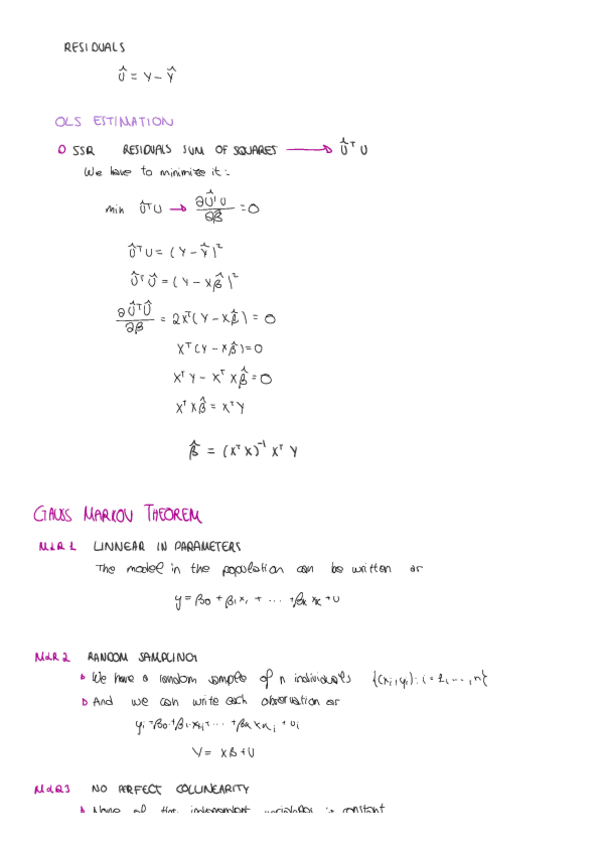 RESIDUALS
Û = Y - Ŷ
OLS ESTIMATION
SSR RESIDUALS SUM OF SQUARES → Û^T U
We have to minimize it:
min Û^T U → ∂Û^T U / ∂β̂ = 0
Û^T U = (Y - Ŷ)²
Û^T Û = (Y - Xβ̂)²
∂Û^T Û / ∂β = 2X^T (Y - Xβ̂) = 0
X^T (Y - Xβ̂) = 0
X^T Y - X^T Xβ̂ = 0
X^T Xβ̂ = X^T Y
β̂ = (X^T X)^-1 X^T Y
GAUSS MARKOV THEOREM
MLR 1 LINNEAR IN PARAMETERS
The model in the population can be written as
y = β0 + β1 x1 + ... + βk xk + U
MLR 2 RANDOM SAMPLING
We have a random sample of n individuals {(xi, yi): i = 1, ..., n}
And we can write each observation as
yi = β0 + β1 x1i + ... + βk xki + ui
Y = Xβ + U
MLR3 NO PERFECT COLLINEARITY
None of the independent variables is constant